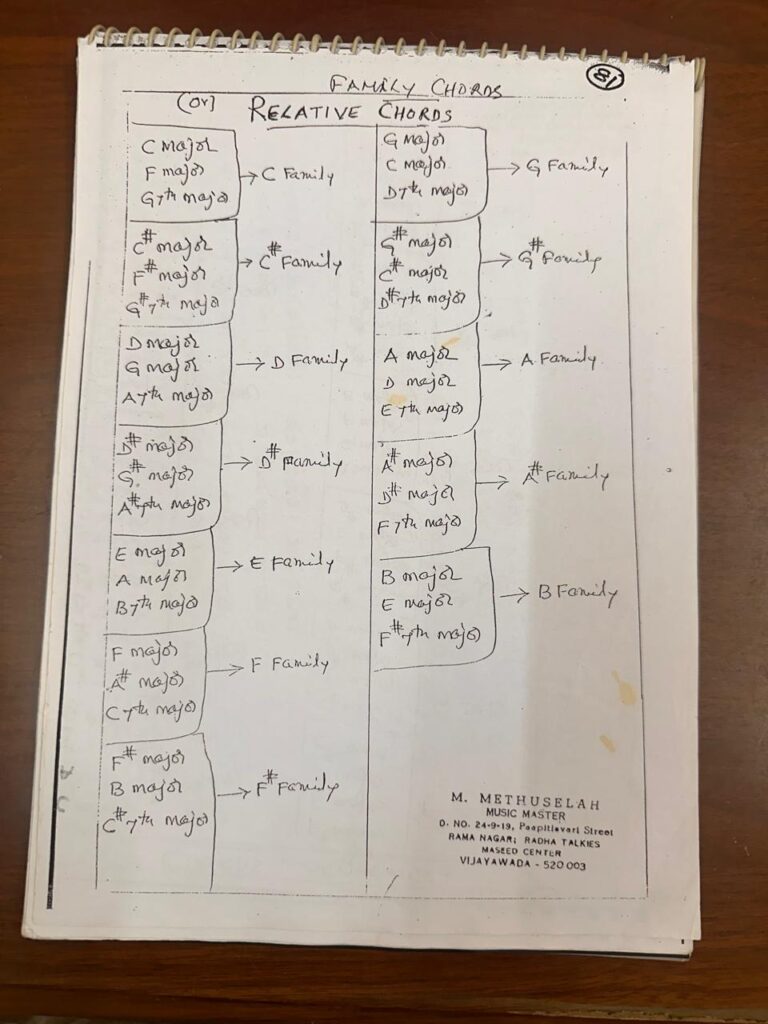 18
FAMILY CHORDS
(Or) RELATIVE CHORDS
C Major
F major
G7th major
→ C Family
C# major
F# major
G#7th major
→ C# Family
D major
G major
A7th major
→ D Family
D# major
G# major
A#7th major
→ D# Family
E major
A major
B7th major
→ E Family
F major
A# major
C7th major
→ F Family
F# major
B major
C#7th major
→ F# Family
G major
C major
D7th major
→ G Family
G# major
C# major
D#7th major
→ G# Family
A major
D major
E7th major
→ A Family
A# major
D# major
F7th major
→ A# Family
B major
E major
F#7th major
→ B Family
M. METHUSELAH
MUSIC MASTER
D. NO. 24-9-19, Paapitlavari Street
RAMA NAGAR; RADHA TALKIES
MASEED CENTER
VIJAYAWADA - 520 003